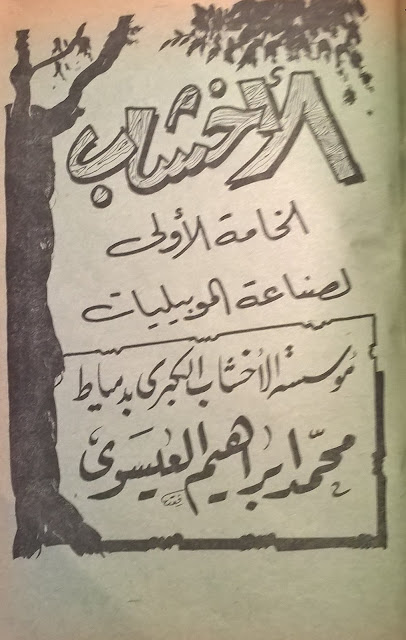 الأخشاب
الخامة الأولى
لصناعة الموبيليات
مؤسسة الأخشاب الكبرى بدمياط
محمد ابراهيم العيسوى